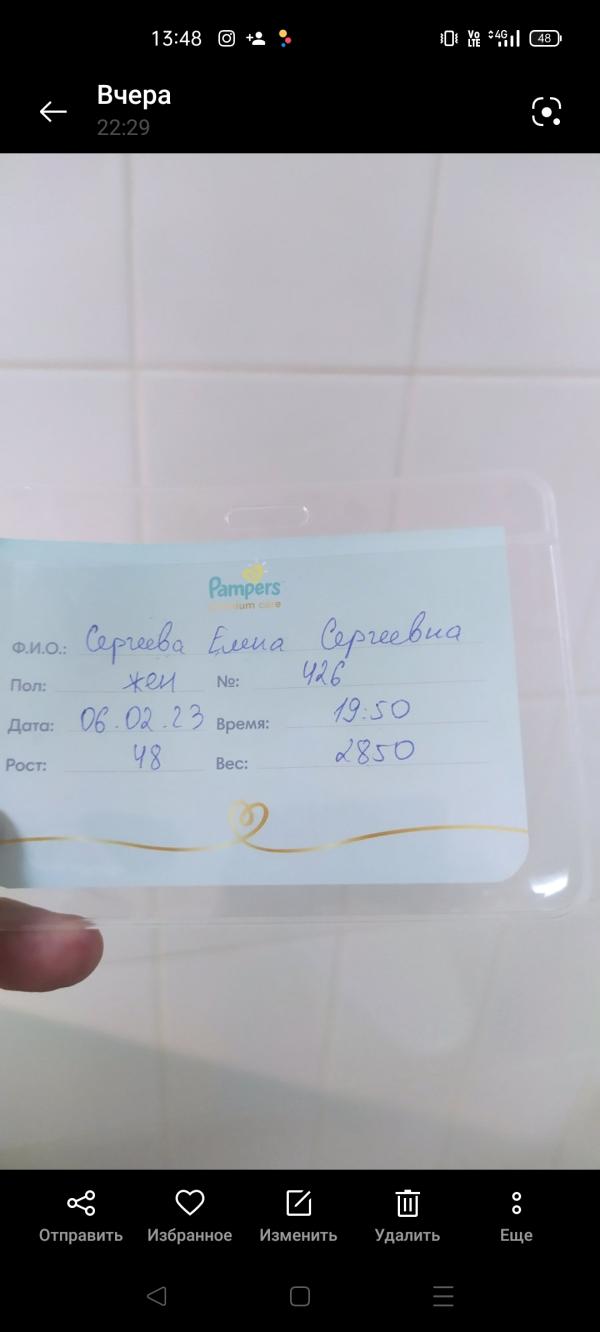 13:48 Vo LTE 4G 48
Вчера
22:29
Pampers
premium care
Ф.И.О.: Сергеева Елена Сергеевна
Пол: жен №: 426
Дата: 06.02.23 Время: 19:50
Рост: 48 Вес: 2850
Отправить Избранное Изменить Удалить Еще